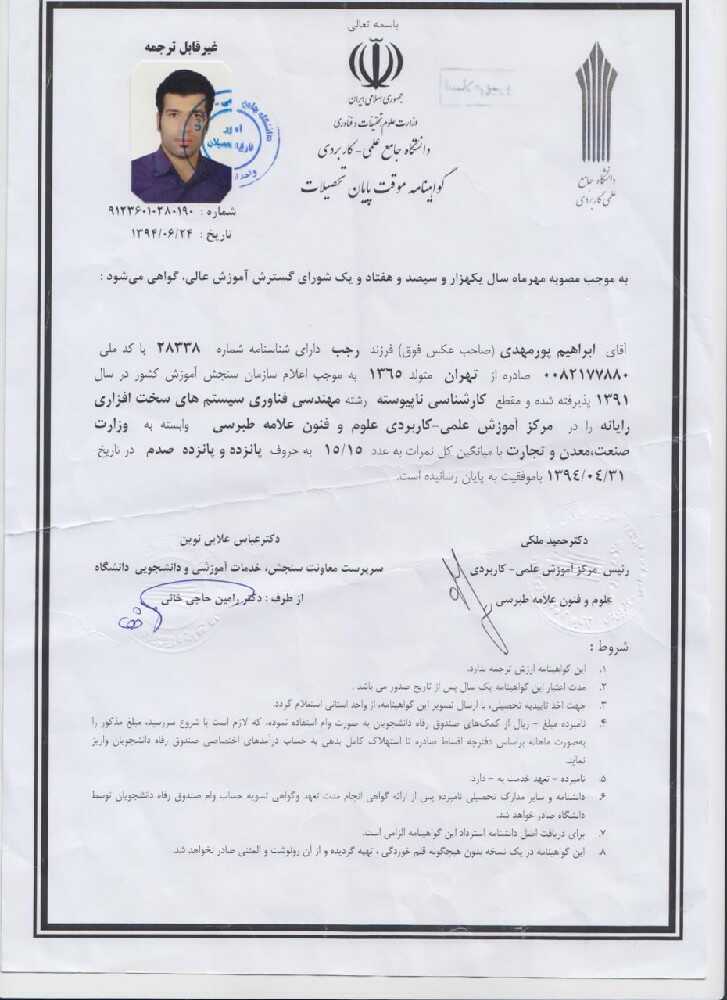 باسمه تعالی
غیرقابل ترجمه
جمهوری اسلامی ایران
وزارت علوم تحقیقات و فناوری
دانشگاه جامع علمی - کاربردی
گواهینامه موقت پایان تحصیلات
دانشگاه جامع
علمی کاربردی
شماره : ۹۱۲۳۶۰۱۰۳۸۰۱۹۰
تاریخ : ۱۳۹۴/۰۶/۲۴
به موجب مصوبه مهرماه سال یکهزار و سیصد و هفتاد و یک شورای گسترش آموزش عالی، گواهی می‌شود :
آقای ابراهیم پورمهدی (صاحب عکس فوق) فرزند رجب دارای شناسنامه شماره ۲۸۳۳۸ با کد ملی
۰۰۸۲۱۷۷۸۸۰ صادره از تهران متولد ۱۳۶۵ به موجب اعلام سازمان سنجش آموزش کشور در سال
۱۳۹۱ پذیرفته شده و مقطع کارشناسی ناپیوسته رشته مهندسی فناوری سیستم های سخت افزاری
رایانه را در مرکز آموزش علمی-کاربردی علوم و فنون علامه طبرسی وابسته به وزارت
صنعت،معدن و تجارت با میانگین کل نمرات به عدد ۱۵/۱۵ به حروف پانزده و پانزده صدم در تاریخ
۱۳۹۴/۰۴/۳۱ باموفقیت به پایان رسانیده است.
دکترحمید ملکی
رئیس مرکز آموزش علمی- کاربردی
علوم و فنون علامه طبرسی
دکترعباس علایی نوین
سرپرست معاونت سنجش، خدمات آموزشی و دانشجویی دانشگاه
از طرف : دکتر رامین حاجی خانی
شروط :
۱. این گواهینامه ارزش ترجمه ندارد.
۲. مدت اعتبار این گواهینامه یک سال پس از تاریخ صدور می باشد .
۳. جهت اخذ تاییدیه تحصیلی، با ارسال تصویر این گواهینامه، از واحد استانی استعلام گردد.
۴. نامبرده مبلغ - ریال از کمک‌های صندوق رفاه دانشجویان به صورت وام استفاده نموده، که لازم است با شروع سررسید، مبلغ مذکور را
به‌صورت ماهانه براساس دفترچه اقساط صادره تا استهلاک کامل بدهی به حساب درآمدهای اختصاصی صندوق رفاه دانشجویان واریز
نماید.
۵. نامبرده - تعهد خدمت به - دارد.
۶. دانشنامه و سایر مدارک تحصیلی نامبرده پس از ارائه گواهی انجام مدت تعهد وگواهی تسویه حساب وام صندوق رفاه دانشجویان توسط
دانشگاه صادر خواهد شد.
۷. برای دریافت اصل دانشنامه استرداد این گواهینامه الزامی است.
۸. این گواهینامه در یک نسخه بدون هیچگونه قلم خوردگی ، تهیه گردیده و از آن رونوشت و المثنی صادر نخواهد شد.